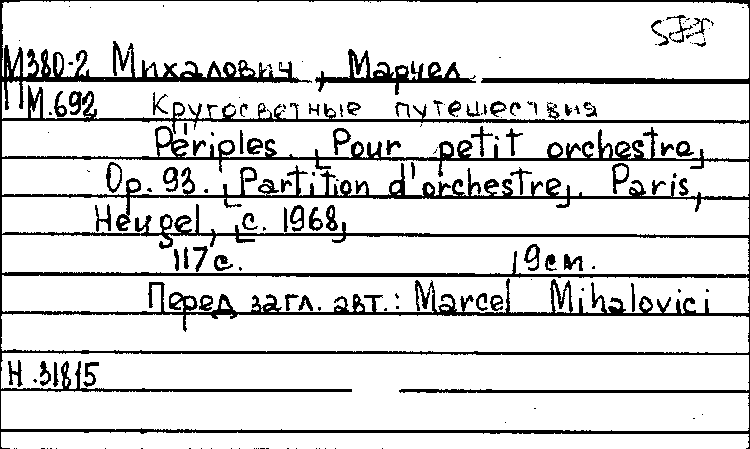 М380-2 Михалович, Марчел
М.692 Кругосветные путешествия
Périples. [Pour petit orchestre]
Op. 93. [Partition d'orchestre]. Paris,
Heugel, [c. 1968]
117с. 19см.
Перед загл. авт.: Marcel Mihalovici
Н.31815